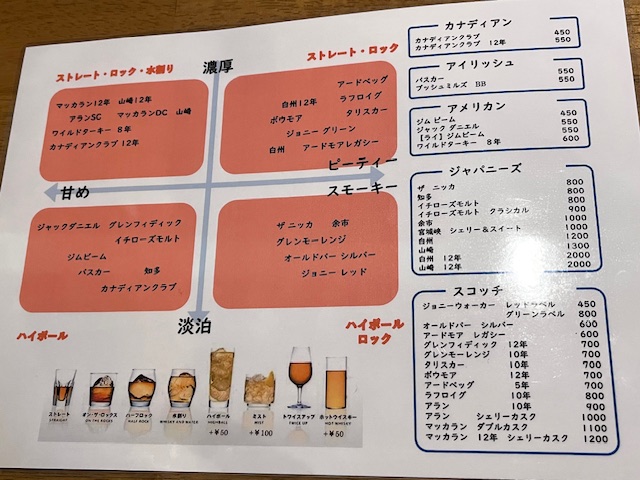 ストレート・ロック・水割り
濃厚
ストレート・ロック
マッカラン12年 山崎12年
アランSC マッカランDC 山崎
ワイルドターキー 8年
カナディアンクラブ 12年
アードベッグ
白州12年 ラフロイグ
ボウモア タリスカー
ジョニー グリーン
白州 アードモアレガシー
甘め
ピーティー
スモーキー
ジャックダニエル グレンフィディック
イチローズモルト
ジムビーム
バスカー 知多
カナディアンクラブ
ザ ニッカ 余市
グレンモーレンジ
オールドパー シルバー
ジョニー レッド
ハイボール
淡泊
ハイボール
ロック
ストレート
STRAIGHT
オン・ザ・ロックス
ON THE ROCKS
ハーフロック
HALF ROCK
水割り
WHISKY AND WATER
ハイボール
HIGHBALL
+¥50
ミスト
MIST
+¥100
トワイスアップ
TWICE UP
ホットウイスキー
HOT WHISKY
+¥50
カナディアン
カナディアンクラブ 450
カナディアンクラブ 12年 550
アイリッシュ
バスカー 550
ブッシュミルズ BB 550
アメリカン
ジム ビーム 450
ジャック ダニエル 550
【ライ】ジムビーム 550
ワイルドターキー 8年 600
ジャパニーズ
ザ ニッカ 800
知多 800
イチローズモルト 800
イチローズモルト クラシカル 900
余市 1000
宮城峡 シェリー&スイート 1000
白州 1200
山崎 1300
白州 12年 2000
山崎 12年 2000
スコッチ
ジョニーウォーカー レッドラベル 450
グリーンラベル 800
オールドパー シルバー 600
アードモア レガシー 600
グレンフィディック 12年 700
グレンモーレンジ 10年 700
タリスカー 10年 700
ボウモア 12年 700
アードベッグ 5年 700
ラフロイグ 10年 800
アラン 10年 900
アラン シェリーカスク 1000
マッカラン ダブルカスク 1100
マッカラン 12年 シェリーカスク 1200